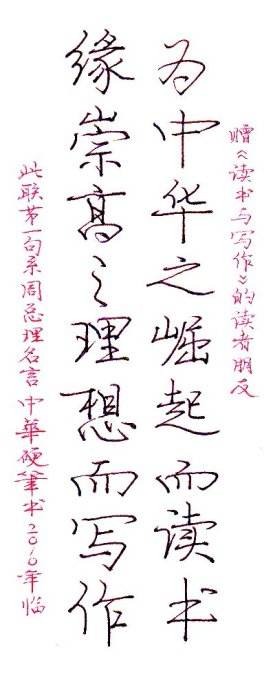 赠《读书与写作》的读者朋友
为中华之崛起而读书
缘崇高之理想而写作
此联第一句系周总理名言 中華硬筆书2010年临